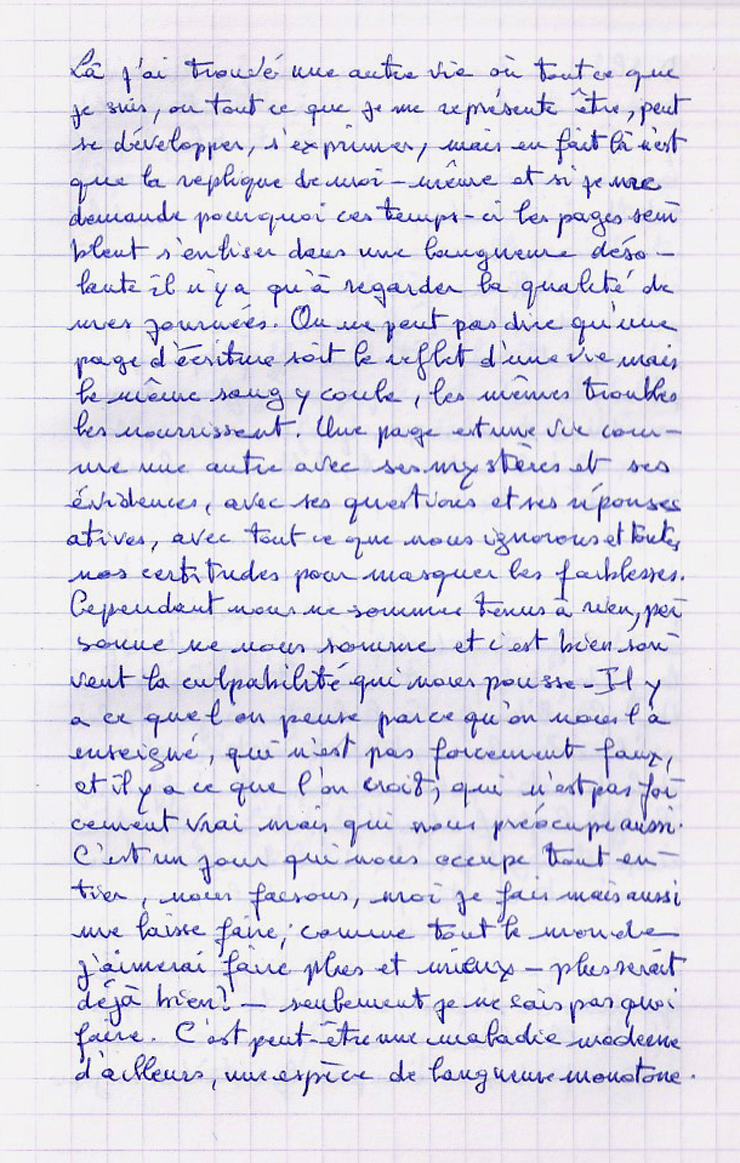 Là j'ai trouvé une autre vie où tout ce que
je suis, ou tout ce que je me représente être, peut
se développer, s'exprimer, mais en fait là n'est
que la replique de moi-même et si je me
demande pourquoi ces temps-ci les pages sem
blent s'enliser dans une langueure déso-
lante il n'y a qu'à regarder la qualité de
mes journées. On ne peut pas dire qu'une
page d'écriture soit le reflet d'une vie mais
le même sang y coule, les mêmes troubles
les nourrissent. Une page est une vie com-
me une autre avec ses mystères et ses
évidences, avec ses questions et ses réponses
atives, avec tout ce que nous ignorons et toutes
nos certitudes pour masquer les faiblesses.
Cependant nous ne sommes tenus à rien, per
sonne ne nous somme et c'est bien sou
vent la culpabilité qui nous pousse - Il y
a ce que l'on pense parce qu'on nous l'a
enseigné, qui n'est pas forcement faux,
et il y a ce que l'on croit, qui n'est pas for
cement vrai mais qui nous préocupe aussi.
C'est un jour qui nous occupe tout en-
tier, nous faisons, moi je fais mais aussi
me laisse faire, comme tout le monde
j'aimerai faire plus et mieux - plus serait
déjà bien! - seulement je ne sais pas quoi
faire. C'est peut-être une maladie moderne
d'ailleurs, une espèce de langueure monotone.